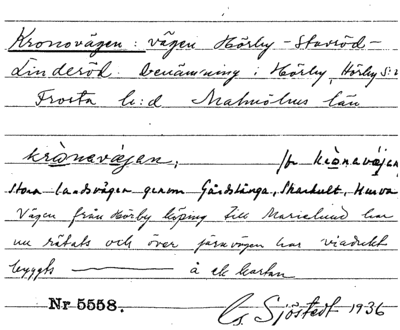 Kronovägen : vägen Hörby – Stavröd –
Linderöd. Benämning i Hörby, Hörby s:n
Frosta h:d Malmöhus län
krònavä̀gan,
Stora landsvägen genom Gårdstånga, Skarhult, Hurva
Vägen från Hörby köping till Marielund har
nu rätats och över järnvägen har viadukt
byggts ——— å ek. kartan
Nr 5558.
G. Sjöstedt 1936